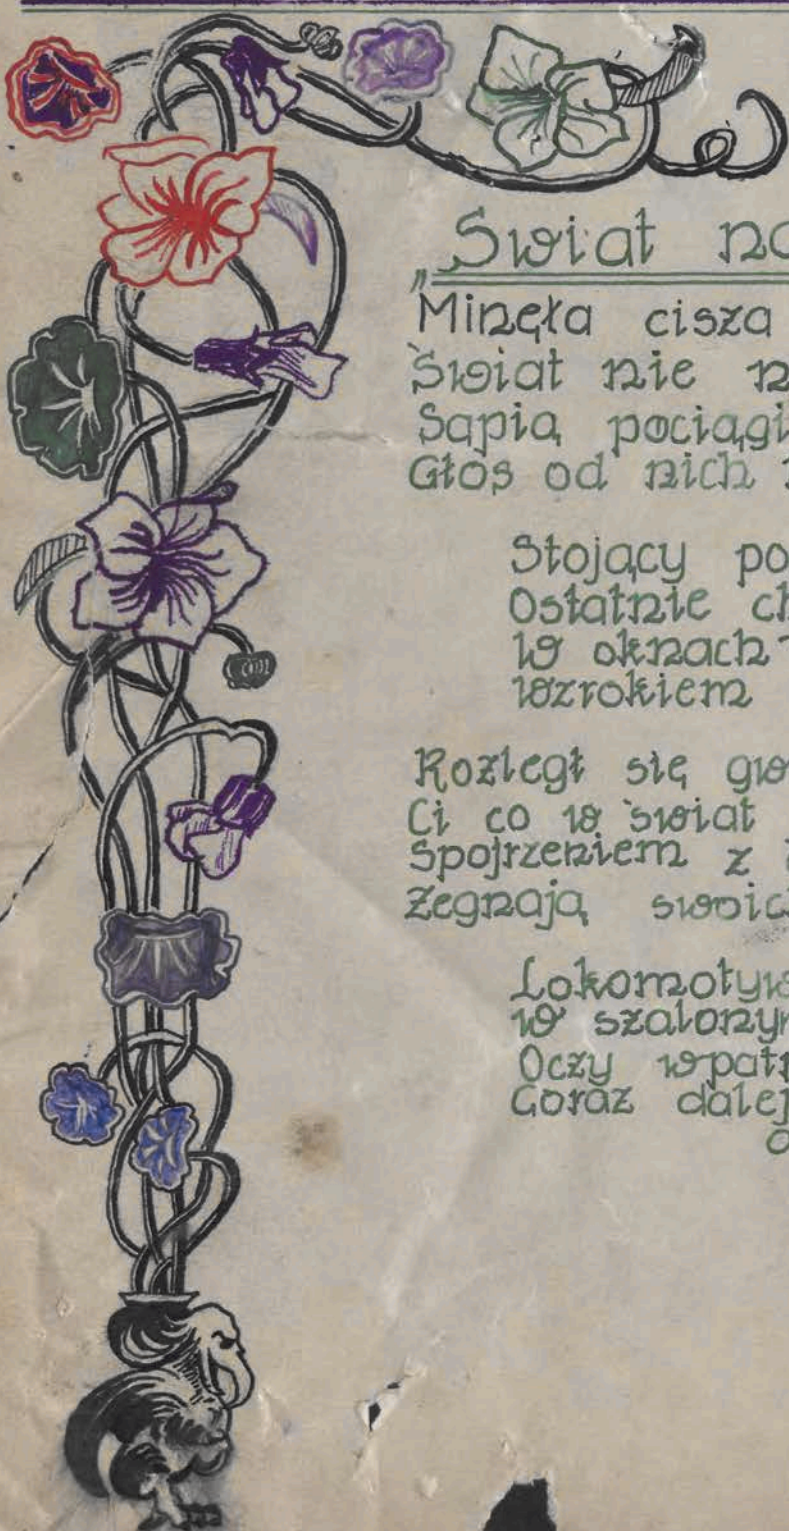 „Swiat
Minęła cisza
Świat nie
Sapią pociągi
Głos od nich
Stojący
Ostatnie
W oknach
wzrokiem
Rozległ się
Ci co w świat
Spojrzeniem z
Zegnają swoich
Lokomotyw
w szalonym
Oczy wpatr
Coraz dalej